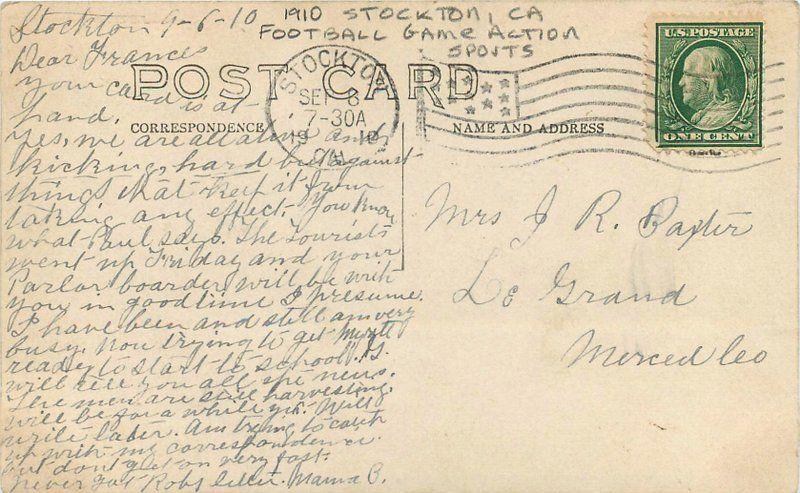 Stockton 9-6-10
1910 STOCKTON, CA
FOOTBALL GAME ACTION
SPORTS
U.S. POSTAGE
ONE CENT
POST CARD
STOCKTON
SEP 8
7-30A
1910
CAL.
CORRESPONDENCE
NAME AND ADDRESS
Dear Frances
your card is at-
hand.
Yes, we are all alive and
kicking, hard but against
things that keep it from
taking any effect. You know
what Paul says. The Tourists
went up Friday and your
Parlor boarder will be with
you in good time I presume.
I have been and still am very
busy. Now trying to get Myrtle
ready to start to school. P.G.
will tell you all the news.
The men are still harvesting.
will be for a while yet. Will
write later. Am trying to catch
up with my correspondence
but dont get on very fast.
Never got Robs letter. Mama B.
Mrs J R. Baxter
Le Grand
Merced Co